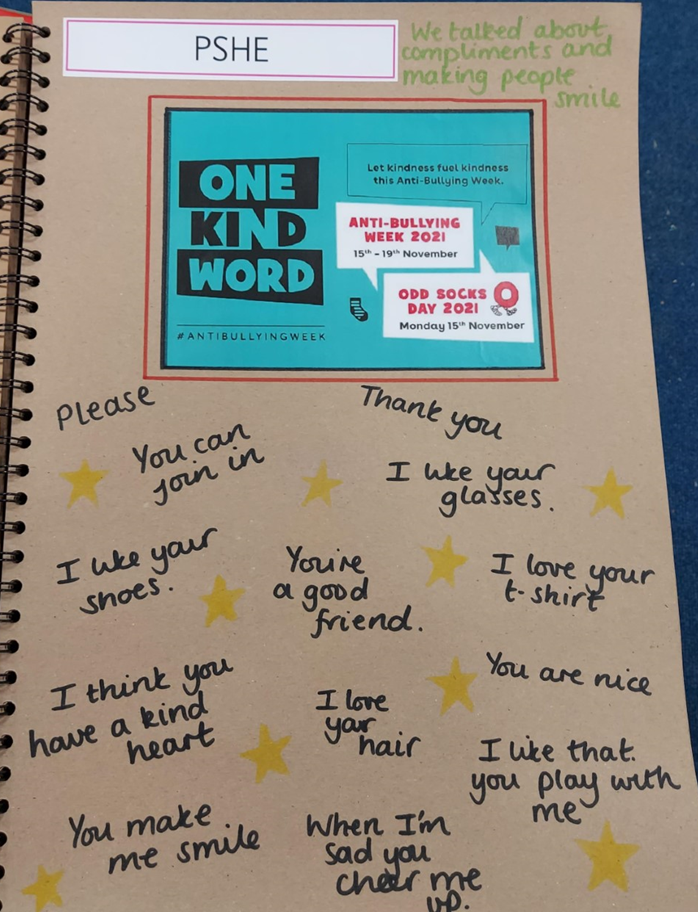 PSHE
We talked about
compliments and
making people
smile
ONE
KIND
WORD
#ANTIBULLYINGWEEK
Let kindness fuel kindness
this Anti-Bullying Week.
ANTI-BULLYING
WEEK 2021
15th - 19th November
ODD SOCKS
DAY 2021
Monday 15th November
Please
Thank you
You can
join in
I like your
glasses.
I like your
shoes.
You're
a good
friend.
I love your
t-shirt
I think you
have a kind
heart
I love
your
hair
You are nice
I like that
you play with
me
You make
me smile
When I'm
sad you
cheer me
up.